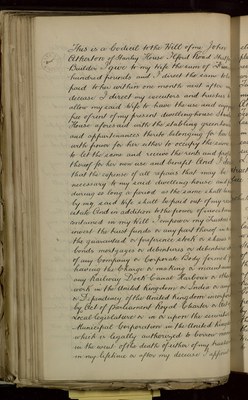 This is a Codicil to the Will of me John
Atherton of Hurley House Ilford Road
Builder I give to my wife the sum of
hundred pounds and I direct the same to be
paid to her within one month next after my
decease I direct my executors and trustees to
allow my said wife to have the use and enjoy
free of rent of my present dwelling house
House aforesaid with the stabling garden
and appurtenances thereto belonging for her
with power for her either to occupy the same
to let the same and receive the rents and profits
thereof for her own use and benefit And I
that the expense of all repairs that may be
necessary to my said dwelling house
during so long a period as the same shall be
by my said wife shall be paid out of my
estate And in addition to the powers of
contained in my Will I empower my trustees
invest the trust funds or any part thereof in
the guaranteed or preference stock or shares
bonds mortgages or debentures or debenture
of any Company or Corporate Body formed
having the charge or making or
any Railway Dock Canal Harbour or other
work in the United Kingdom or India or any
Dependency of the United Kingdom
by Act of Parliament Royal Charter or
local legislature or in or upon the securities
Municipal Corporation in the United Kingdom
which is legally authorized to borrow money
in the event of the death of either of my trustees
in my lifetime or after my decease I appoint